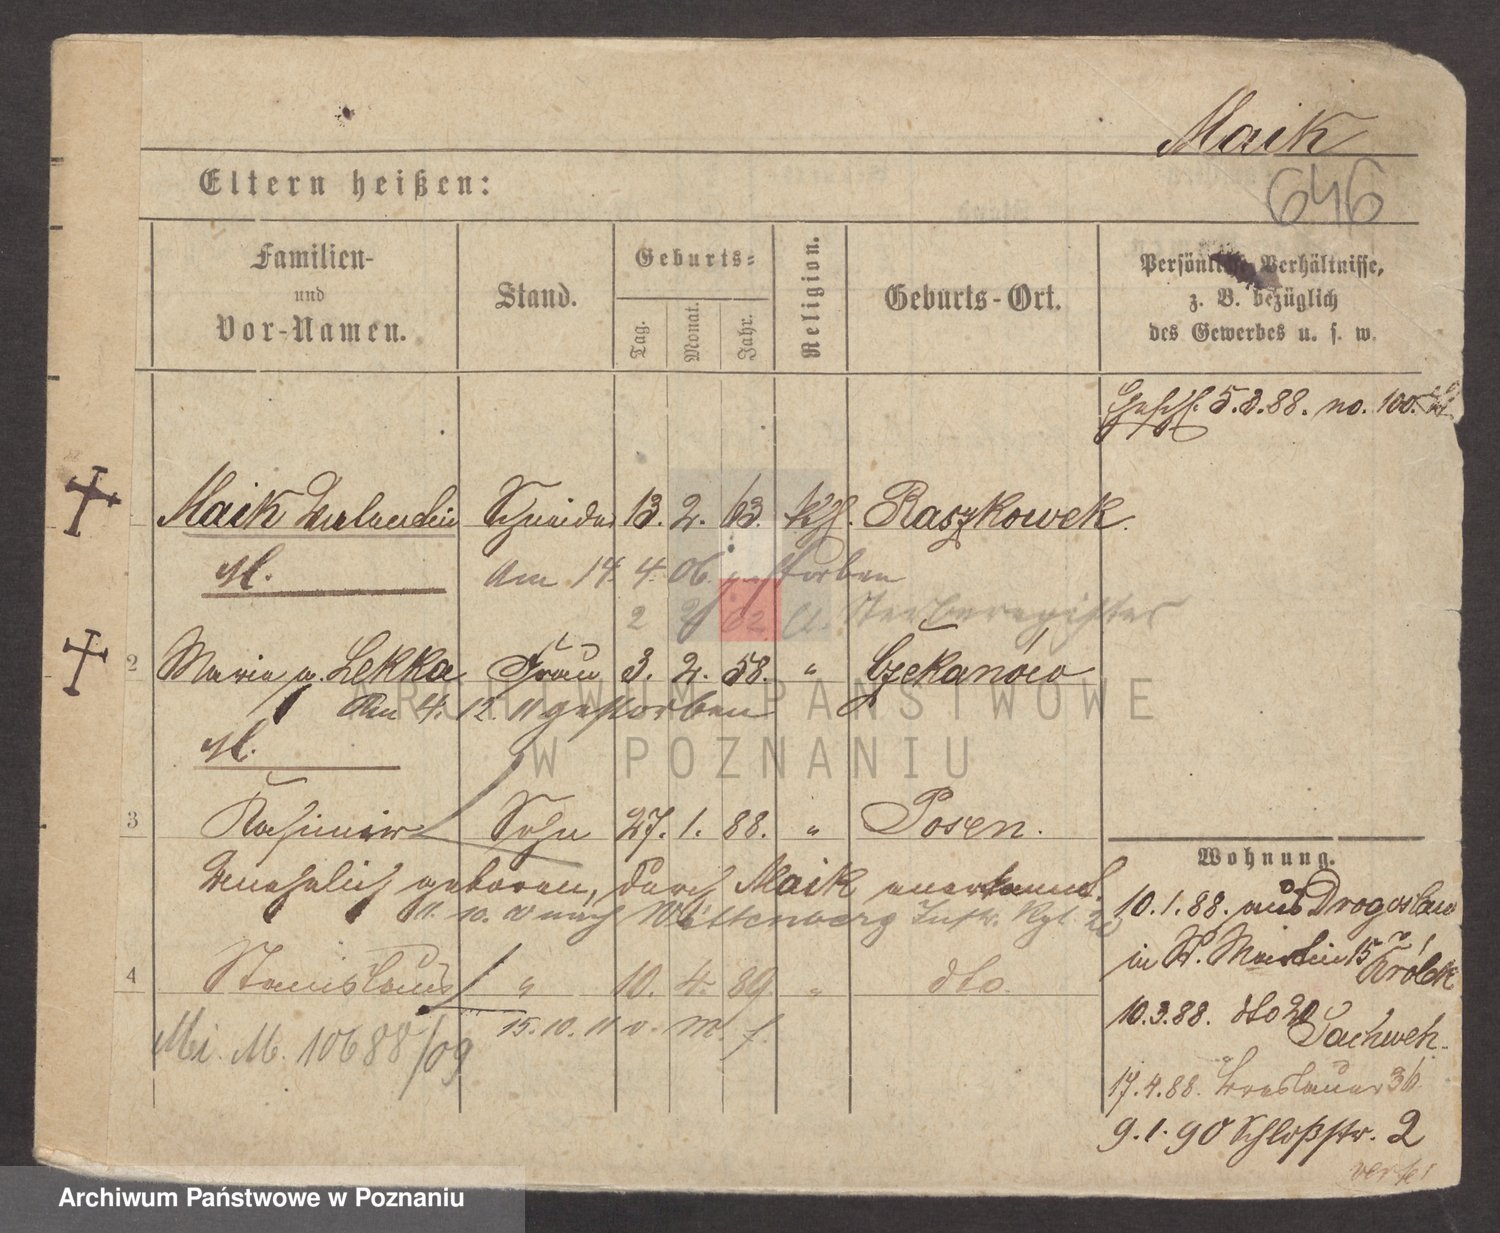 Maik
646
Eltern heißen:
Familien-
und
Vor-Namen.
Stand.
Geburts-
Tag.
Monat.
Jahr.
Religion.
Geburts-Ort.
Persönliche Verhältnisse,
z. B. bezüglich
des Gewerbes u. s. w.
5.3.88. no. 100.
Maik Valentin Schneider 13. 2. 63. kth. Raszkowek.
M. Am 14. 4. 06. gestorben
Sterberegister
2 Marie g. Lekka Frau 3. 2. 58. " Czekanów
Am 4. 12 11 gestorben
M.
3 Kasimir Sohn 27. 1. 88. " Posen.
Unehelich geboren, durch Maik anerkannt.
nach Wittenberg Inftr. Rgt. 20
4 Stanislaus " 10. 4. 89. " dto.
15. 10. 11 v. M. f.
Mi. M. 10688/09
Wohnung.
10.1.88. aus Drogoslaw
in St. Martin 15 b/ Królek
10.3.88. dto 20
Sachweh.
17.4.88. Breslauer 36
9.1.90 Schloßstr. 2
ARCHIWUM PAŃSTWOWE
W POZNANIU
Archiwum Państwowe w Poznaniu